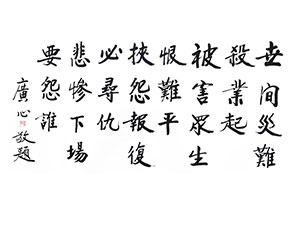 世間災難
殺業起
被害眾生
恨難平
挾怨報復
必尋仇
悲慘下場
要怨誰
廣心敬題